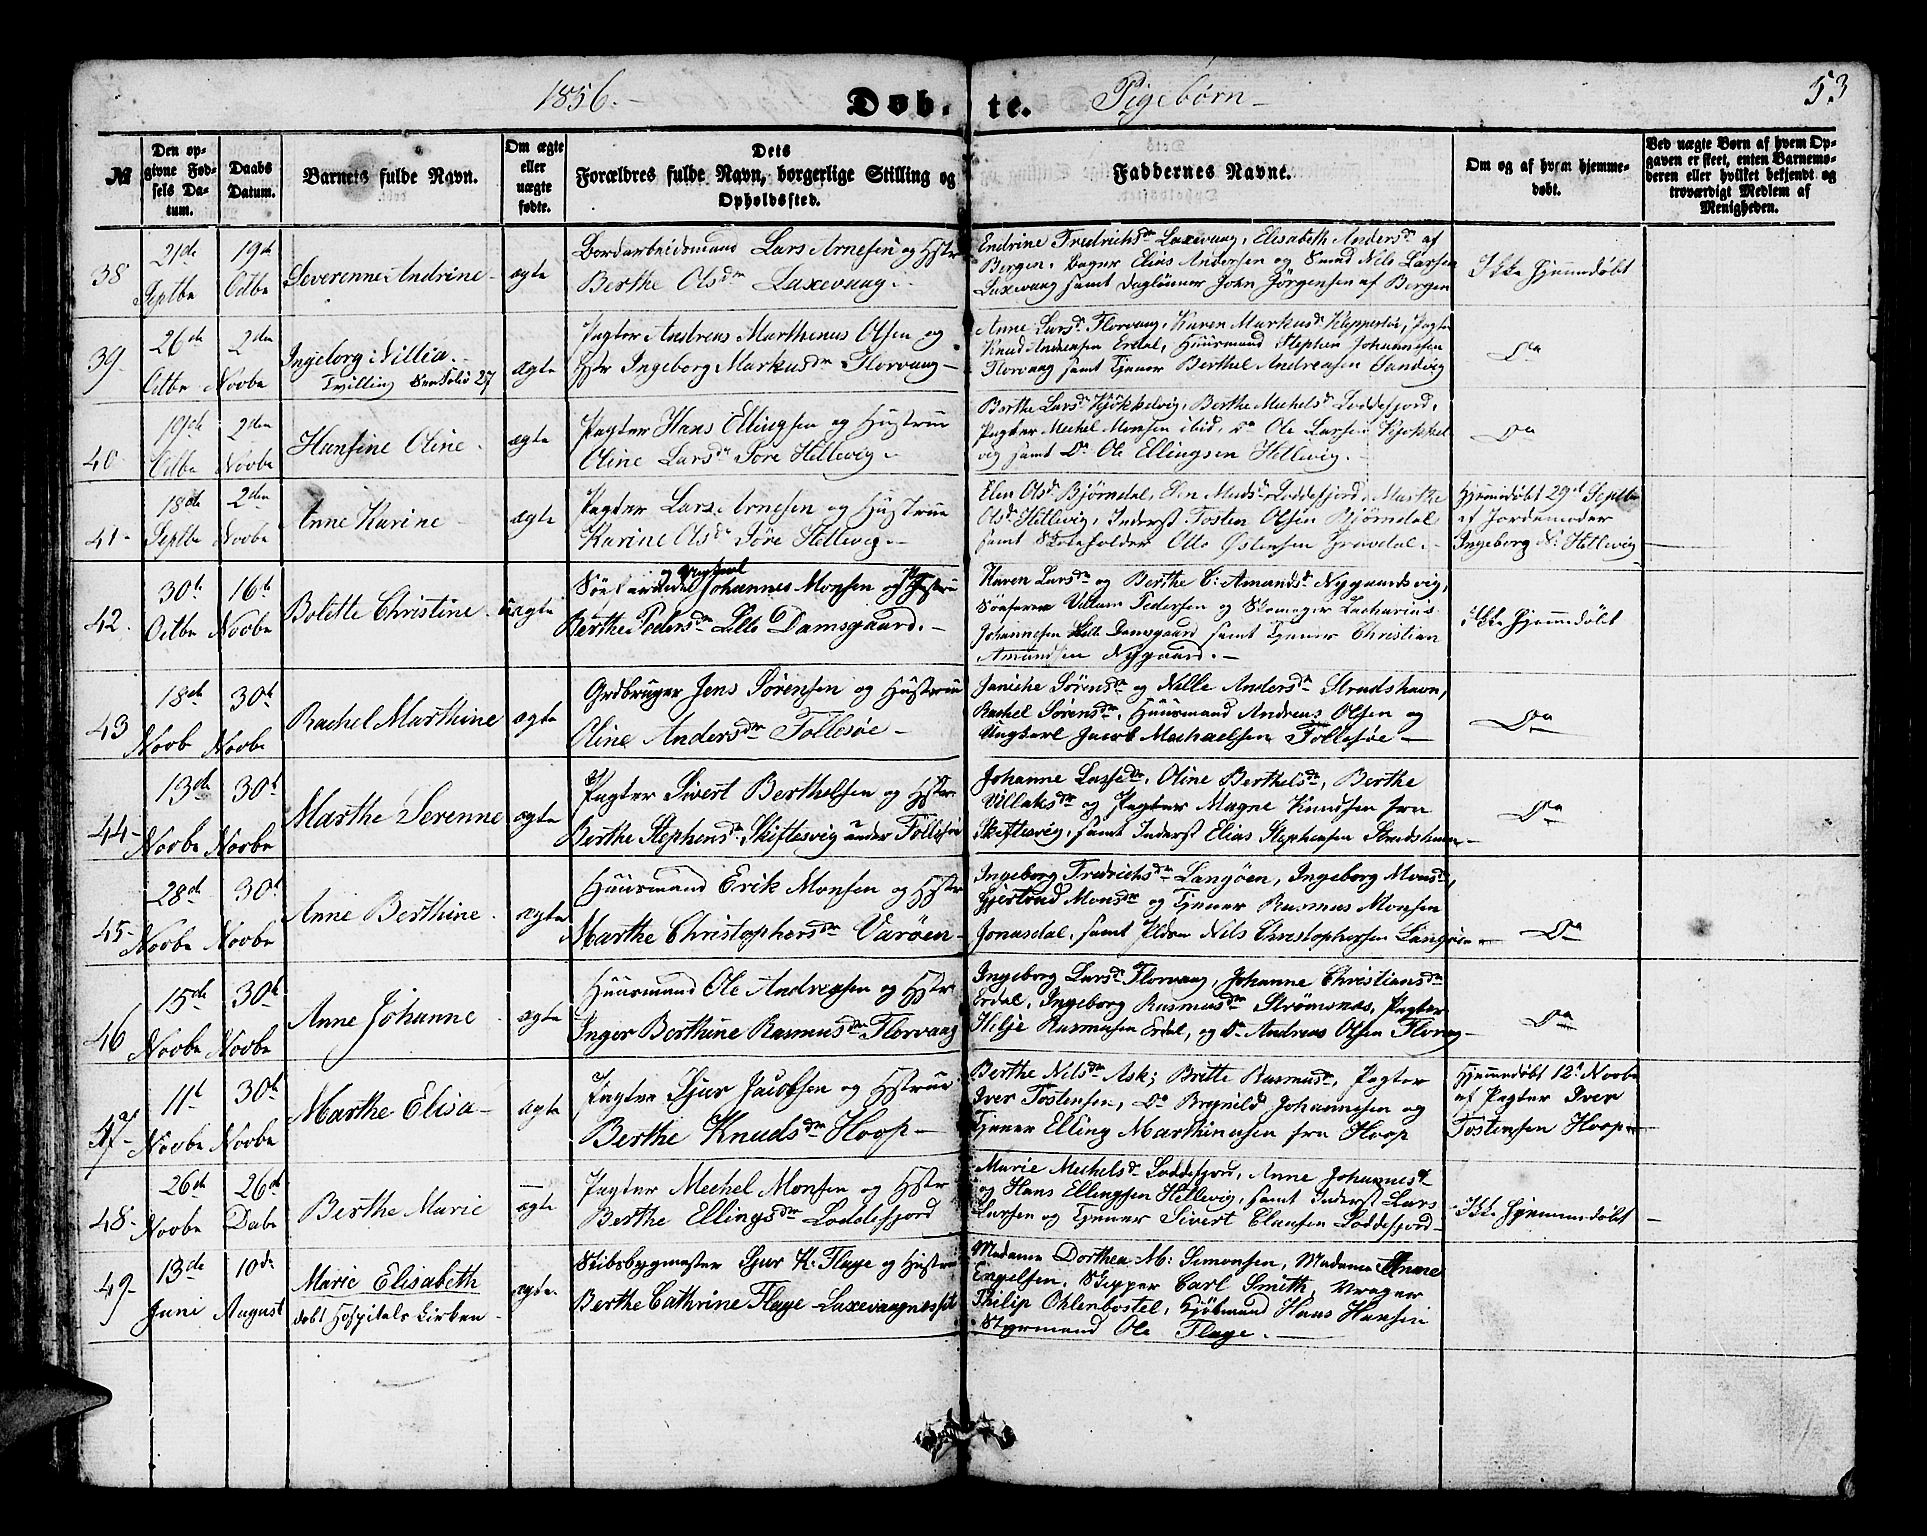 1856.
Døb-te.
Pigebørn
53
№
Den op-
givne Fød-
sels Da-
tum.
Daabs
Datum.
Barnets fulde Navn.
Om ægte
eller
uægte
fødte.
Dets
Forældres fulde Navn, borgerlige Stilling og
Opholdssted.
Faddernes Navne.
Om og af hvem hjemme-
døbt.
Ved uægte Børn af hvem Op-
gaven er skeet, enten Barnemo-
deren eller hvilket bekjendt og
troværdigt Medlem af
Menigheden.
38
21de
Septbr
19de
Octbr
Severenne Andrine
ægte
Lars Arnesen og Hstr
Berthe Olsdtr Laxevaag.
Endrine Fredrichsdr Laxevaag, Elisabeth Andersdr af
Bergen, Bager Elias Andersen og Svend Nils Larsen
Laxevaag samt Daglønner John Jörgensen af Bergen
Ikke hjemmedøbt
39.
26de
Octbr
2den
Novbr
Ingeborg Nillia.
Tvilling See Folio 27
ægte
Pagter Andreas Marthenus Olsen og
Hstr Ingeborg Markusdtr Florvaag
Anne Larsdr Florvaag, Karen Markusdr Kleppestøe, Pagter
Knud Andersen Erdal, Huusmand Stephen Johannesen
Florvaag samt Tjener Berthel Andreasen Sandvig
Do
40.
19de
Octbr
2den
Novbr
Hansine Oline.
ægte
Pagter Hans Ellingsen og Hustrue
Oline Larsdr Søre Hellevig.
Berthe Larsdr Kjökkelvig, Berthe Michelsdr Loddefjord,
Pagter Mechel Monsen ibid, Do Ole Larsen Kjøkkel
vig samt Do Ole Ellingsen Hellevig.
Do
41.
18de
Septbr
2den
Novbr
Anne Karine
ægte
Pagter Lars Arnesen og Hustrue
Karine Olsdr Søre Hellevig.
Elen Olsdr Björndal, Elen Madsdr Loddefjord, Marthe
Olsdr Hellevig, Inderst Tosten Olsen Björndal
samt Skoleholder Otto Østensen Gravdal.
Hjemmdøbt 29de Septbr
af Jordemoder
Ingeborg N. Hellevig
42.
30te
Octbr
16te
Novbr
Bolette Christine
uægte
Johannes Monsen og
Berthe Pedersdtr Lille Damsgaard.
Karen Larsdtr og Berthe C. Amundsdr Nygaardsvig,
Søefarer Villum Pedersen og Skomager Zacharias
Johannesen Lille Damsgaard samt Tjener Christian
Amundsen Nygaard.
Ikke hjemmdøbt
43
18de
Novb
30te
Novbr
Rachel Marthine
ægte
Grdbruger Jens Sørensen og Hustrue
Oline Andersdtr Follesøe
Janiche Sørensdr og Nille Andersdr Strudshavn,
Rachel Sørensdtr, Huusmand Andreas Olsen og
Ungkarl Jacob Mechaelsen Follesøe
Do
44
13de
Novbr
30te
Novbr
Marthe Serenne
ægte
Pagter Sivert Berthelsen og Hstr
Berthe Stephensdr Skiftesvig under Follesøe
Johanne Lassedr, Oline Berthelsdr, Berthe
Villaksdtr og Pagter Magne Knudsen fra
Skiftesvig, samt Inderst Elias Stephensen Strudshavn
Do
45
28de
Novbr
30te
Novbr
Anne Berthine
ægte
Huusmand Erik Monsen og Hstr
Marthe Christophersdtr Varøen
Ingeborg Fredrichsdtr Langøen, Ingeborg Monsdr,
Gjertrud Monsdtr og Tjener Rasmus Monsen
Jonasdal, samt Nils Christophersen Langøen
Do
46
15de
Novbr
30te
Novbr
Anne Johanne
ægte
Huusmand Ole Andreasen og Hstr
Inger Berthine Rasmusdtr Florvaag
Ingeborg Larsdr Florvaag, Johanne Christiansdtr
Erdal, Ingeborg Rasmusdtr Strömsnæs, Pagter
Helje Rasmusen Erdal, og Do Andreas Olsen Florvag
Do
47
11te
Novbr
30te
Novbr
Marthe Elisa
ægte
Pagter Sjur Jacobsen og Hstrue
Berthe Knudsdtr Hoop
Berthe Nilsdtr Ask, Britte Rasmusdr, Pagter
Iver Tostensen, Do Brynild Johannesen og
Tjener Elling Marthinusen fra Hoop
Hjemmdøbt 12te Novbr
af Pagter Iver
Tostensen Hoop
48
26de
Novbr
26de
Debr
Berthe Marie
ægte
Pagter Mechel Monsen og Hstr
Berthe Ellingsdtr Loddefjord
Marie Mechelsdr Loddefjord, Anne Johannesdr
og Hans Ellingsen Hellevig, samt Inderst Lars
Larsen og Tjener Sivert Claussen Loddefjord
Ikke hjemmdøbt
49
13de
Juni
10de
August
Marie Elisabeth
døbt Hospitals Kirken
ægte.
Skibsbygmester Sjur K. Flage og Hustrue
Berthe Cathrine Flage Laxevaagnesset
Madame Dorthea M: Simonsen, Madame Anne
Engelsen, Skipper Carl Smith, Vrager
Philip Ohlenbostel, Kjöbmand Hans Hansen
Styrmand Ole Flage.